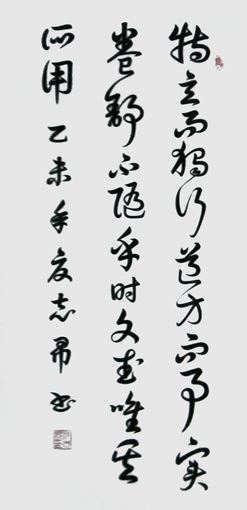 特立而獨行道方而事实
卷舒不随乎时文武唯其
所用 乙未年夏志昂书